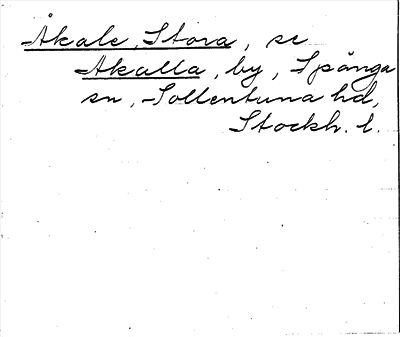 Åkale, Stora, se
Akalla, by, Spånga
sn, Sollentuna hd,
Stockh. l.